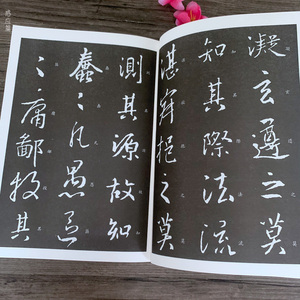 凝玄遵之莫
知其際法流
湛寂挹之莫
測其源故知
蠢〻凡愚區
〻庸鄙投其